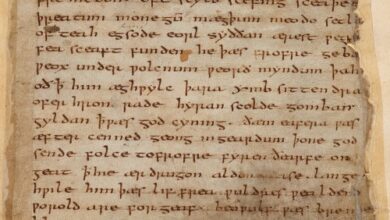 fre medon. oft scyld scefing sceaþe
þreatum monegū mægþum meodo setla
of teah egsode eorl syððan ærest ƿear
fea sceaft funden he þæs frofre geba
ƿeox under ƿolcnum ƿeorð myndum þah
oð ꝥ him æghƿylc þara ymb sittendra
ofer hron rade hyran scolde gomban
gyldan ꝥ ƿæs god cyning. ðæm eafera ƿæs
æfter cenned geong ingeardum þone god
sende folce tofrofre fyren ðearfe on
geat ꝥ hie ær drugon aldor ase. lange
hƿile him þæs lif frea ƿuldres ƿealdend
ƿorold are for geaf. beoƿulf ƿæs breme